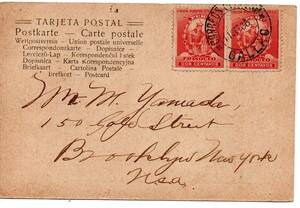 TARJETA POSTAL
Postkarte — Carte postale
Weltpostverein — Union postale universelle
Correspondenzkarte — Dopisnice
Levelező-Lap — Korespondenční lístek
Dopisnica — Karta Korespondencyjna
Briefkaart — Cartolina Postale
Brefkort — Postcard
DOS CENTAVOS
DOS CENTAVOS
CALLAO
Mr M. Yamada,
150 Gold Street
Brooklyn New York
Usa.